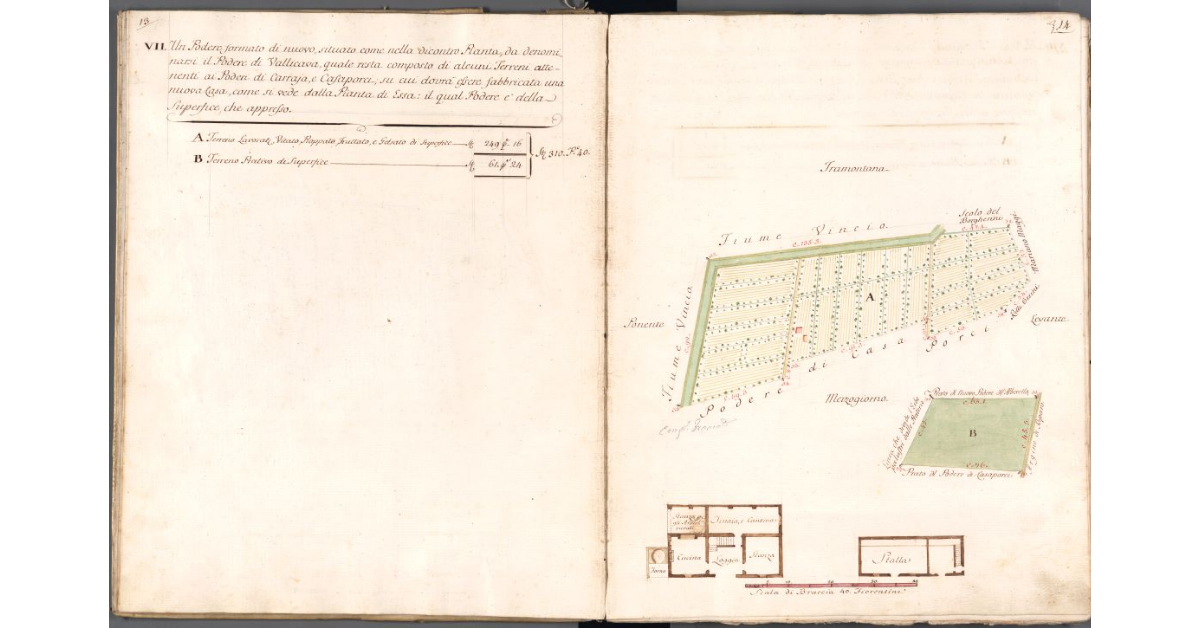 13
VII. Un Podere, formato di nuovo, situato come nella dicontro Pianta, da denomi-
narsi il Podere di Vallicava, quale resta composto di alcuni Terreni atte-
nenti ai Poderi di Carraja, e Casaporci, su cui dovrà essere fabbricata una
nuova Casa, come si vede dalla Pianta di Essa: il qual Podere è della
Superfice, che appresso.
A Terreno Lavorat., Vitato, Pioppato, Fruttato, e Gelsato di Superfice 249 p. 16
B Terreno Prativo di Superfice 61. p. 24
310. P. 40.
14
Tramontana.
Fiume Vincio
Scolo del
Borghenni
Fiume Vincio
Ponente
A
Levante.
Podere di Casa Porci
Mezzogiorno.
Prato di Podere del
B
Prato del Podere di Casaporci
Argine di
Stanza
Tinaio, e Cantina
Cucina
Loggia
Stanza
Forno
Stalla
Scala di Braccia 40. Fiorentine